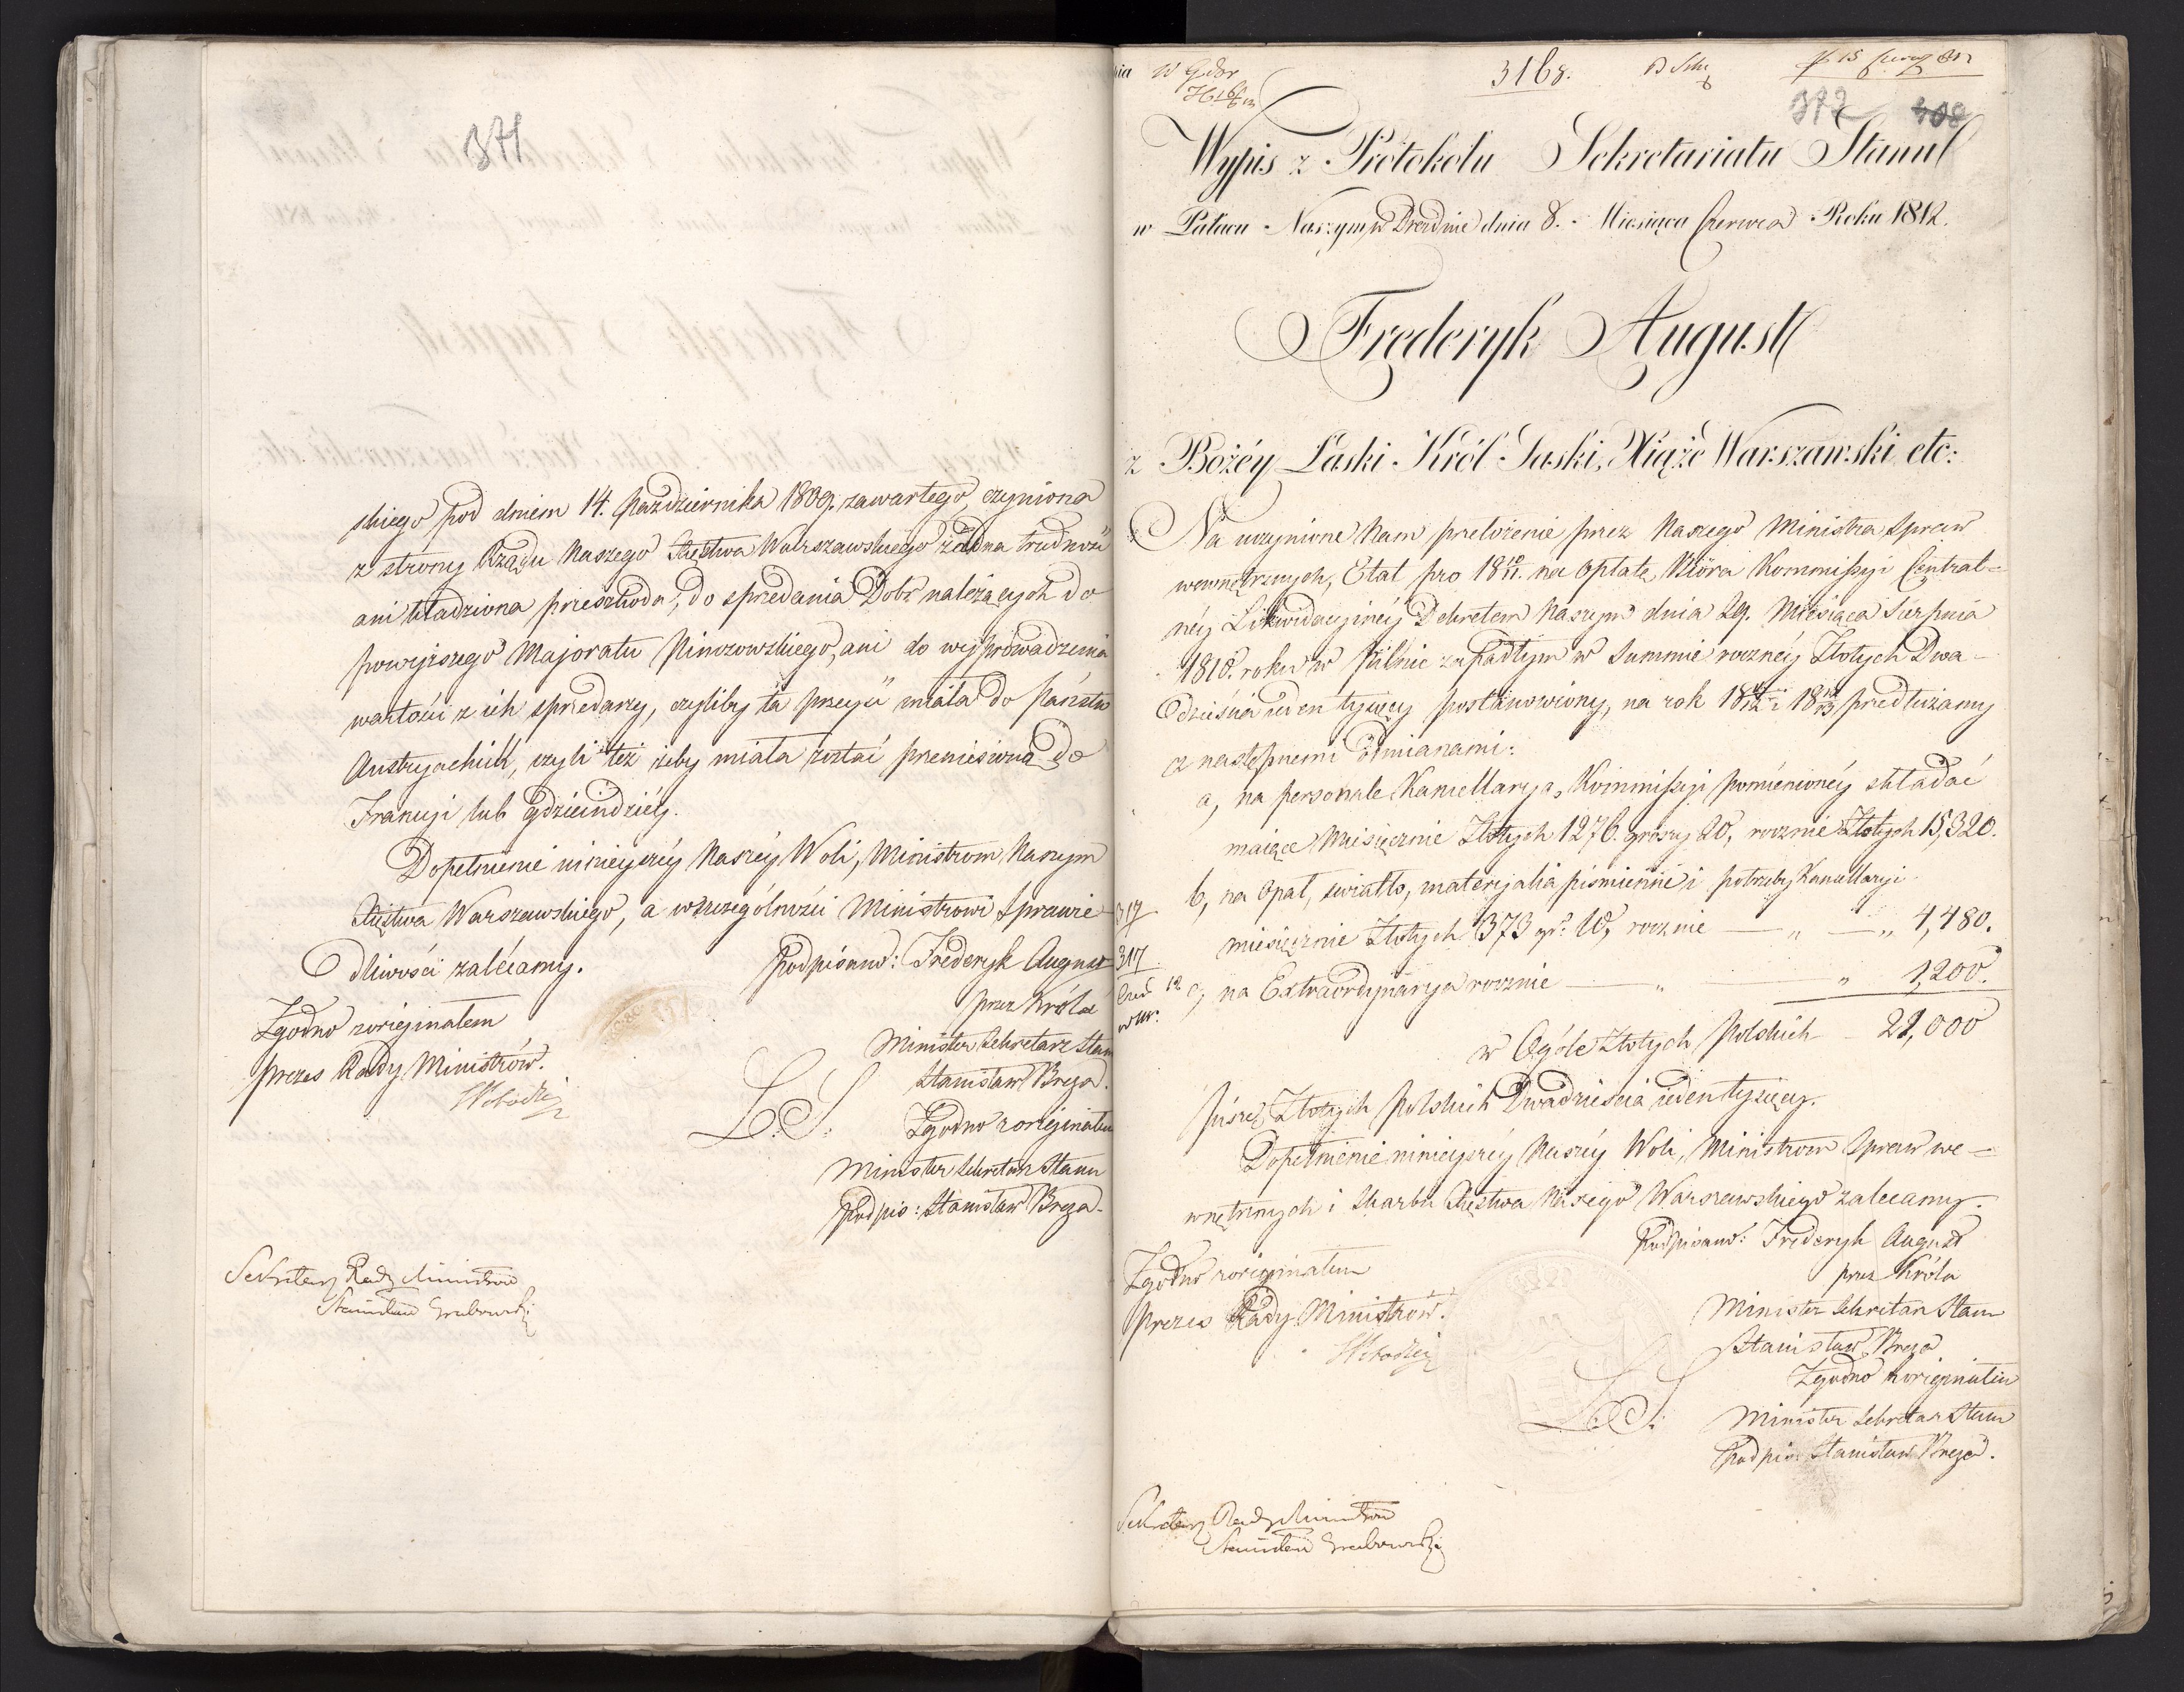 371
skiego pod dniem 14. Października 1809. zawartego, czyniona
z strony Rządu Naszego Xięstwa Warszawskiego żadna trudność
ani kładziona przeszkoda, do sprzedania Dobr należących do
powyższego Majoratu Pinczowskiego, ani do wyprowadzenia
wartości z ich sprzedarzy, czyliby ta przeyść miała do Państw
Austryackich, czyli też żeby miała zostać przeniesiona do
Francyi lub gdzieindziéy.
Dopełnienie ninieyszéy Naszéy Woli, Ministrom Naszym
Xięstwa Warszawskiego, a wszczególności Ministrowi Sprawie-
dliwości zalécamy.
Podpisano: Frederyk August
przez Króla
Minister Sekretarz Stan
Stanisław Breza.
L. S.
Zgodno z originałem
Minister Sekretarz Stanu
Podpis: Stanisław Breza.
Zgodno z originałem
Prezes Rady Ministrów.
Sekretarz Rady Ministrów
Stanisław Grabowski
3168.
372 408
Wypis z Protokołu Sekretariatu Stanu
w Pałacu Naszym w Dreźnie dnia 8. Miesiąca Czerwca Roku 1812.
Frederyk August
z Bożéy Łaski Król Saski, Xiążę Warszawski etc:
Na uczynione Nam przełożenie przez Naszego Ministra Spraw
wewnętrznych, Etat pro 18 10/11. na Opłatę Bióra Kommissyi Central-
néy Likwidacyinéy Dekretem Naszym dnia 29. Miesiąca Sierpnia
1810. roku w Pilnic zapadłym w Summie rocznéy Złotych Dwa-
dzieścia ieden tysięcy postanowiony, na rok 18 11/12 i 18 12/13 przedłużamy
z następnemi odmianami:
a, na personale Kancellarya, Kommissyi pomienionéy składać
maiące Miesięcznie Złotych 1276. groszy 20, rocznie Złotych 15,320.
b, na Opał, światło, materyalia piśmienne i potrzeby Kancellaryi
miesięcznie Złotych 373 gr: 10, rocznie — „ — „ 4,480.
c, na Extraordynarya rocznie — „ — „ 1,200.
w Ogóle Złotych Polskich - 21,000
piszę Złotych Polskich Dwadzieścia ieden tysięcy.
Dopełnienie ninieyszéy Naszéy Woli, Ministrom Spraw we-
wnętrznych i Skarbu Xięstwa Naszego Warszawskiego zalecamy.
Podpisano: Frederyk August
przez Króla
Minister Sekretarz Stanu
Stanisław Breza
L. S.
Zgodno z originałem
Minister Sekretarz Stanu
Podpis: Stanisław Breza.
Zgodno z originałem
Prezes Rady Ministrów.
Sekretarz Rady Ministrów
Stanisław Grabowski